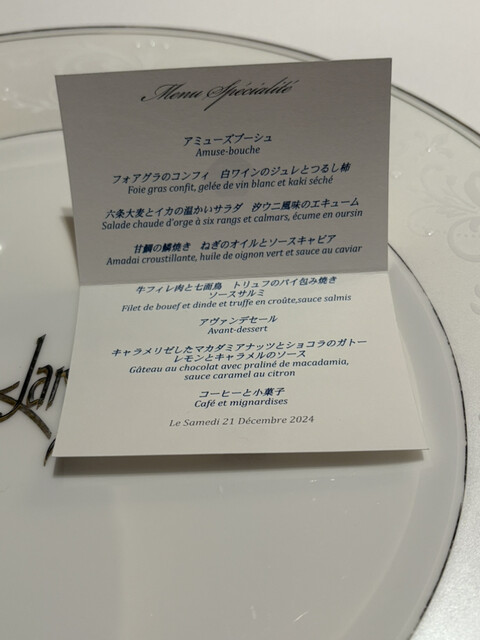 Menu Spécialité
アミューズブーシュ
Amuse-bouche
フォアグラのコンフィ　白ワインのジュレとつるし柿
Foie gras confit, gelée de vin blanc et kaki séché
六条大麦とイカの温かいサラダ　汐ウニ風味のエキューム
Salade chaude d'orge à six rangs et calmars, écume en oursin
甘鯛の鱗焼き　ねぎのオイルとソースキャビア
Amadai croustillante, huile de oignon vert et sauce au caviar
牛フィレ肉と七面鳥　トリュフのパイ包み焼き
ソースサルミ
Filet de bouef et dinde et truffe en croûte,sauce salmis
アヴァンデセール
Avant-dessert
キャラメリゼしたマカダミアナッツとショコラのガトー
レモンとキャラメルのソース
Gâteau au chocolat avec praliné de macadamia,
sauce caramel au citron
コーヒーと小菓子
Café et mignardises
Le Samedi 21 Décembre 2024